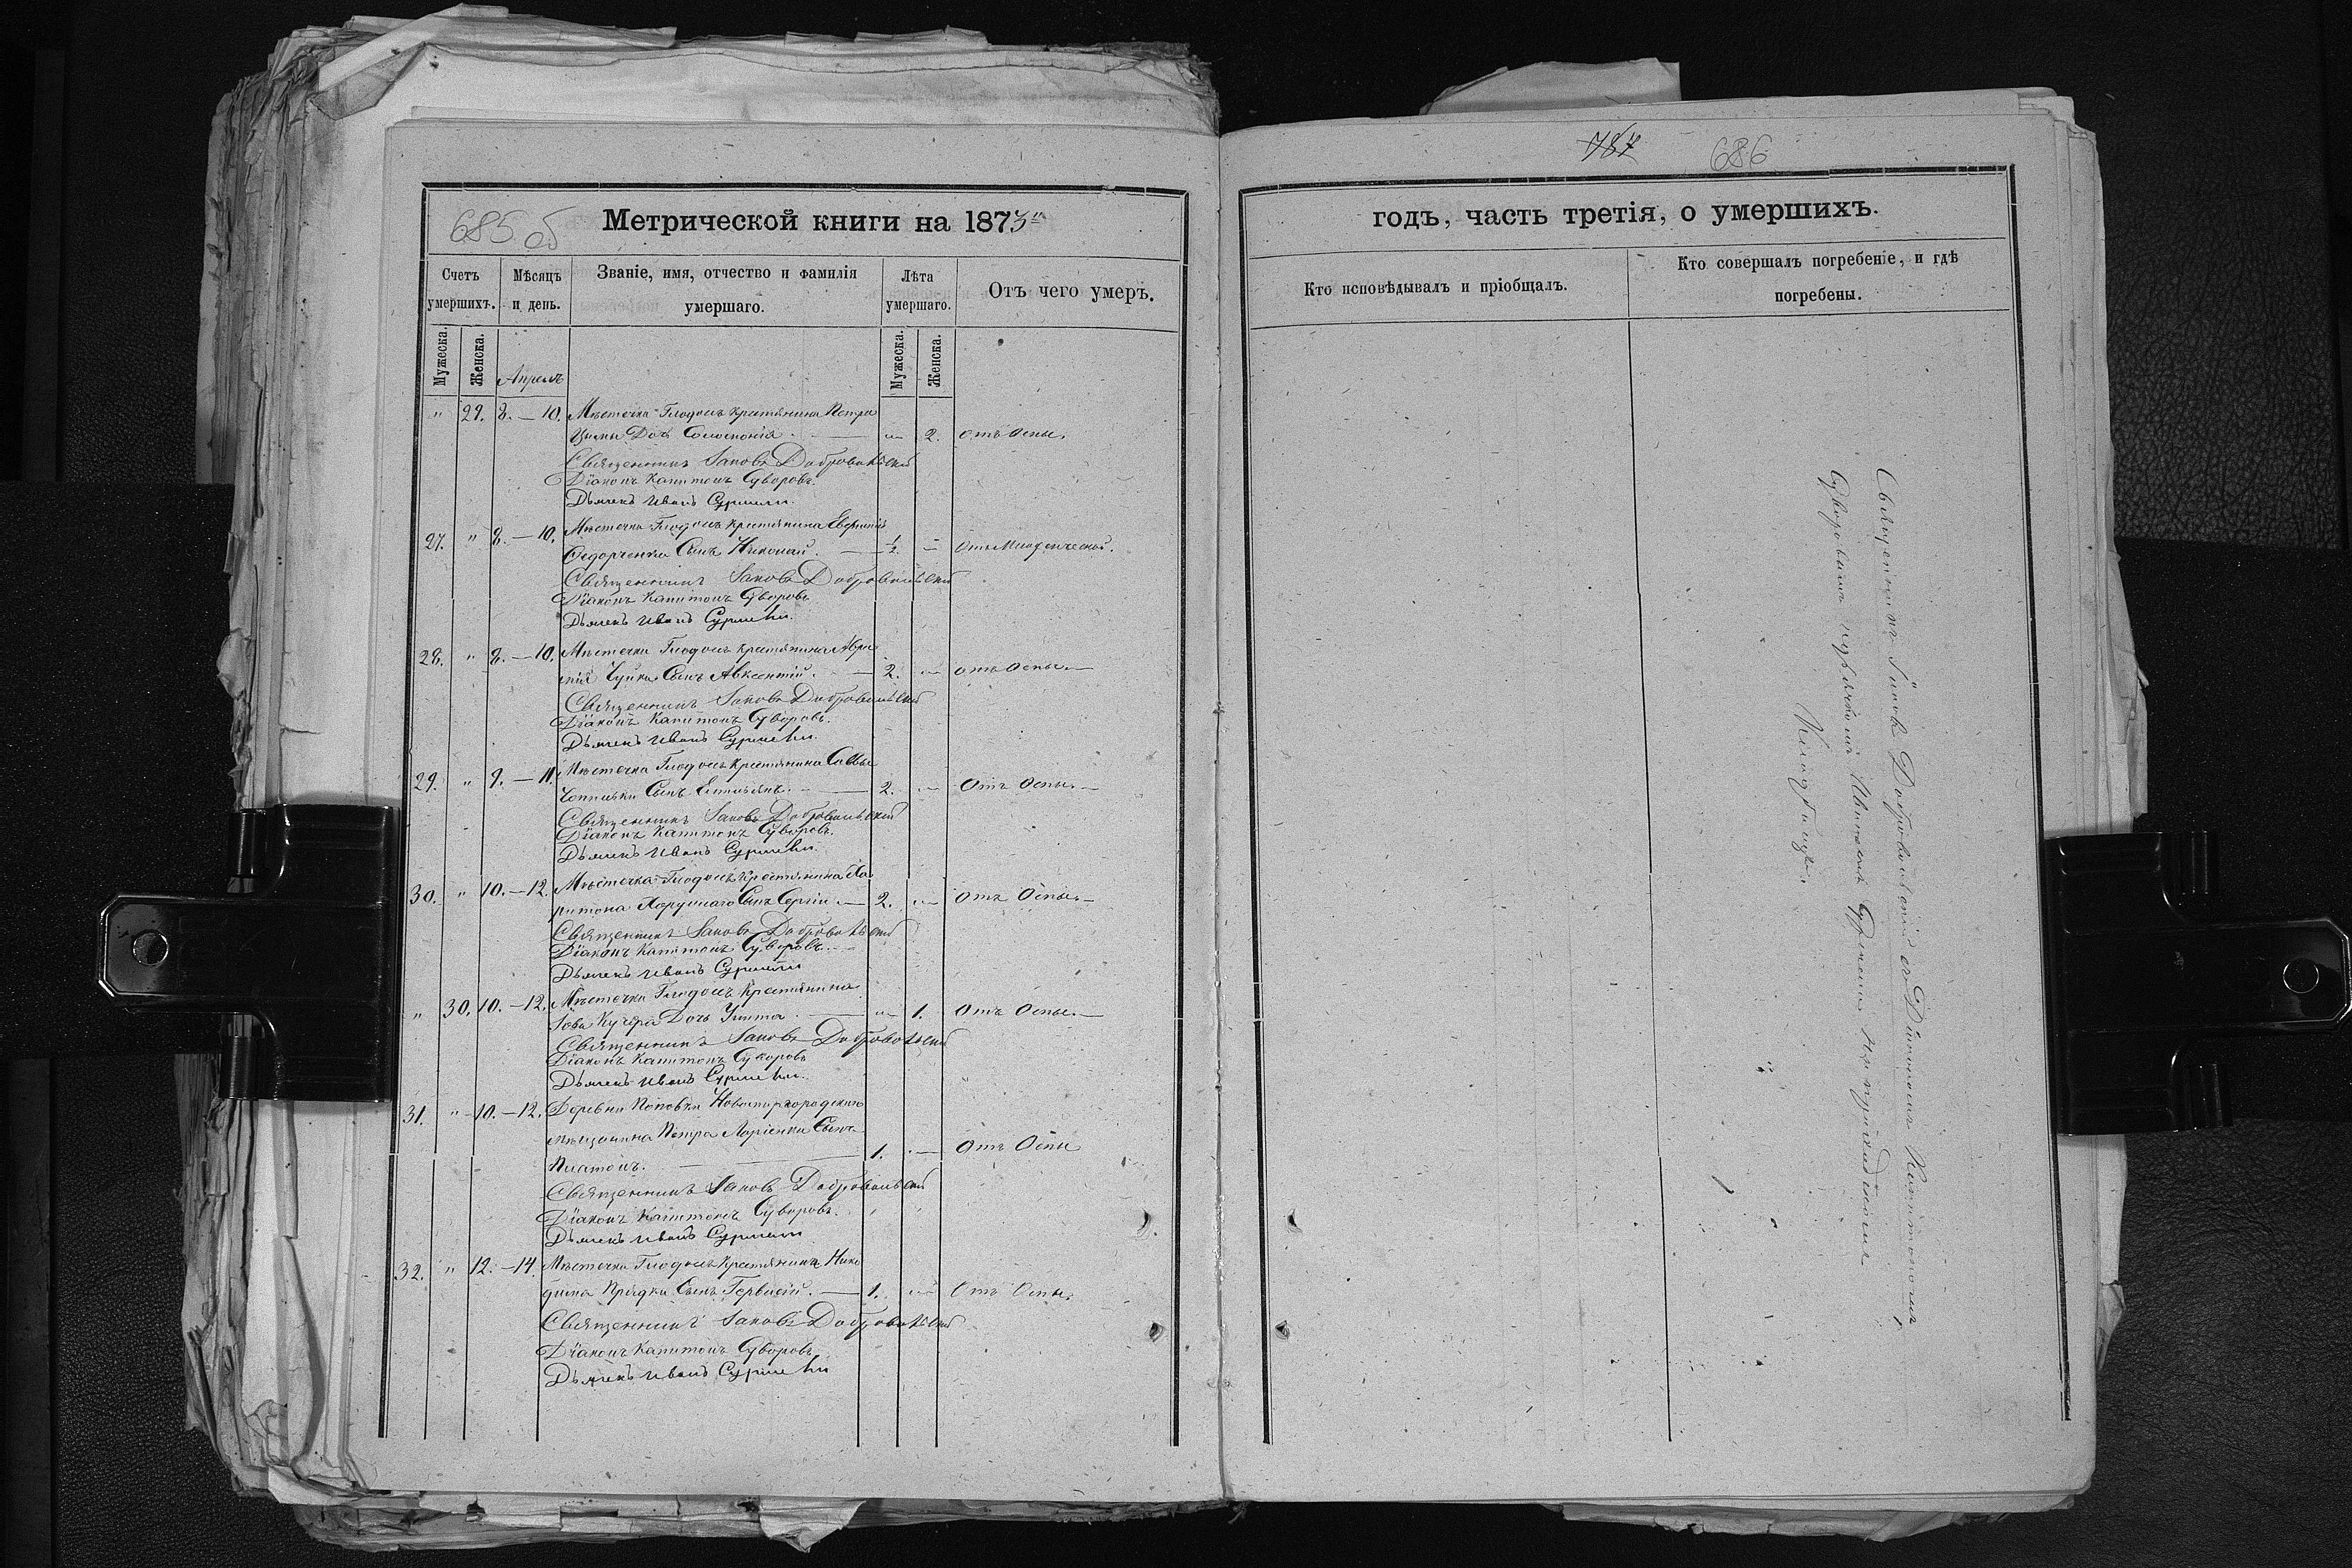 787 686
685 об Метрической книги на 1873й
годъ, часть третія, о умершихъ.
Счетъ умершихъ.
Мѣсяцъ и день.
Званіе, имя, отчество и фамилія умершаго.
Лѣта умершаго.
Отъ чего умеръ.
Кто исповѣдывалъ и пріобщалъ.
Кто совершалъ погребеніе, и гдѣ погребены.
Мужеска. Женска. Апрель Мужеска. Женска.
" 29. 8. — 10. Мѣстечка Глодосъ крестянина Петра
Дочь Соломонія. — " 2. отъ Оспы.
Священникъ Іаковъ Добровольскій
Діаконъ Капитонъ Суворовъ.
Дьячекъ Иванъ
27. " 8. — 10. Мѣстечка Глодосъ крестянина Евгенія
Федорченка Сынъ Николай. — 1/2 — отъ Младенческой.
Священникъ Іаковъ Добровольскій
Діаконъ Капитонъ Суворовъ
Дьячекъ Иванъ
28. " 8. — 10. Мѣстечка Глодосъ крестянина
Чуйка Сынъ Авксентій. — 2. — отъ Оспы. —
Священникъ Іаковъ Добровольскій
Діаконъ Капитонъ Суворовъ.
Дьячекъ Иванъ
29. " 9. — 11. Мѣстечка Глодосъ крестянина Саввы
Сынъ — 2. — Отъ Оспы. —
Священникъ Іаковъ Добровольскій
Діаконъ Капитонъ Суворовъ.
Дьячекъ Иванъ
30. " 10. — 12. Мѣстечка Глодосъ крестянина Ха
ритона Сынъ Сергій. — 2. — Отъ Оспы. —
Священникъ Іаковъ Добровольскій
Діаконъ Капитонъ Суворовъ. —
Дьячекъ Иванъ
" 30. 10. — 12. Мѣстечка Глодосъ крестянина
Іова Кучера Дочь Улита. — " 1. Отъ Оспы. —
Священникъ Іаковъ Добровольскій
Діаконъ Капитонъ Суворовъ
Дьячекъ Иванъ
31. " 10. — 12. Деревни Поповки Новомиргородскаго
мѣщанина Петра Ларіенка Сынъ
Платонъ. — 1. — Отъ Оспы
Священникъ Іаковъ Добровольскій
Діаконъ Капитонъ Суворовъ.
Дьячекъ Иванъ
32. " 12. — 14. Мѣстечка Глодосъ крестянина Нико
дима Прядки Сынъ Гервасій. — 1. — Отъ Оспы.
Священникъ Іаковъ Добровольскій
Діаконъ Капитонъ Суворовъ
Дьячекъ Иванъ
Священникъ Іаковъ Добровольскій съ Діакономъ Капитономъ
Суворовымъ Иваномъ на приходскомъ
Кладбищѣ.